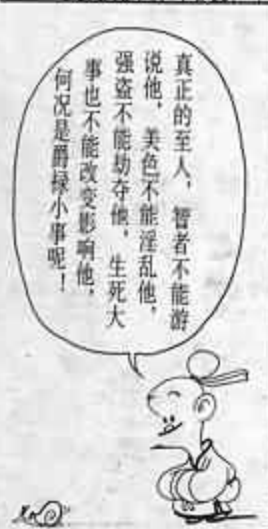 真正的至人，智者不能游
说他，美色不能淫乱他，
强盗不能劫夺他，生死大
事也不能改变影响他，
何况是爵禄小事呢！